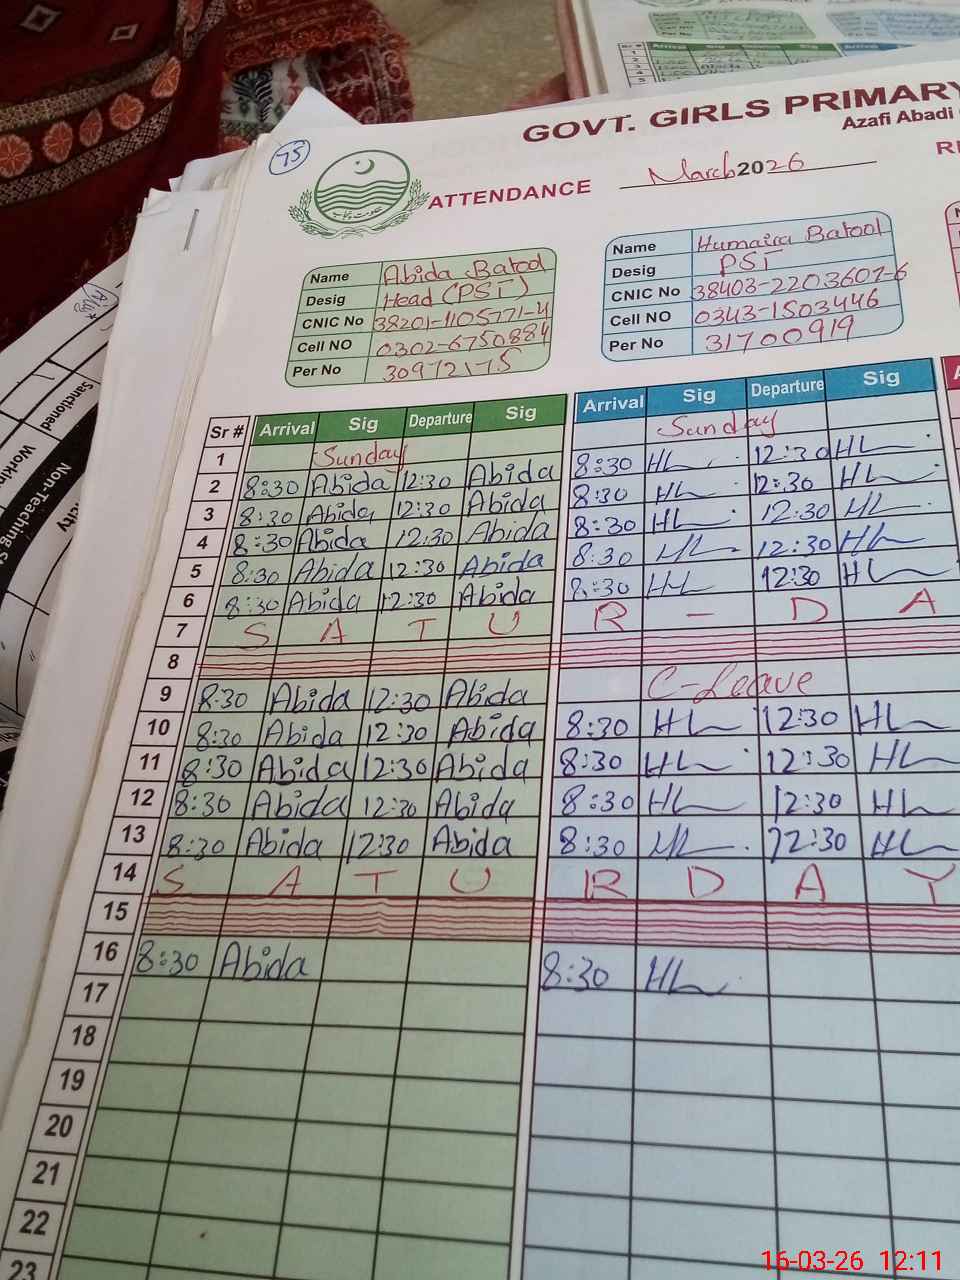 GOVT. GIRLS PRIMARY
Azafi Abadi
75
ATTENDANCE March 2026
Name Abida Batool
Desig Head (PST)
CNIC No 38201-1105771-4
Cell NO 0302-6750884
Per No 30972175
Name Humaira Batool
Desig PST
CNIC No 38403-2203607-6
Cell NO 0343-1503446
Per No 31700919
Sr # Arrival Sig Departure Sig Arrival Sig Departure Sig
1 Sunday Sunday
2 8:30 Abida 12:30 Abida 8:30 HL 12:30 HL
3 8:30 Abida 12:30 Abida 8:30 HL 12:30 HL
4 8:30 Abida 12:30 Abida 8:30 HL 12:30 HL
5 8:30 Abida 12:30 Abida 8:30 HL 12:30 HL
6 8:30 Abida 12:30 Abida 8:30 HL 12:30 HL
7 S A T U R - D A
8
9 8:30 Abida 12:30 Abida C-Leave
10 8:30 Abida 12:30 Abida 8:30 HL 12:30 HL
11 8:30 Abida 12:30 Abida 8:30 HL 12:30 HL
12 8:30 Abida 12:30 Abida 8:30 HL 12:30 HL
13 8:30 Abida 12:30 Abida 8:30 HL 12:30 HL
14 S A T U R D A Y
15
16 8:30 Abida 8:30 HL
17
18
19
20
21
22
23
Sanctioned
Non-Teaching
16-03-26 12:11